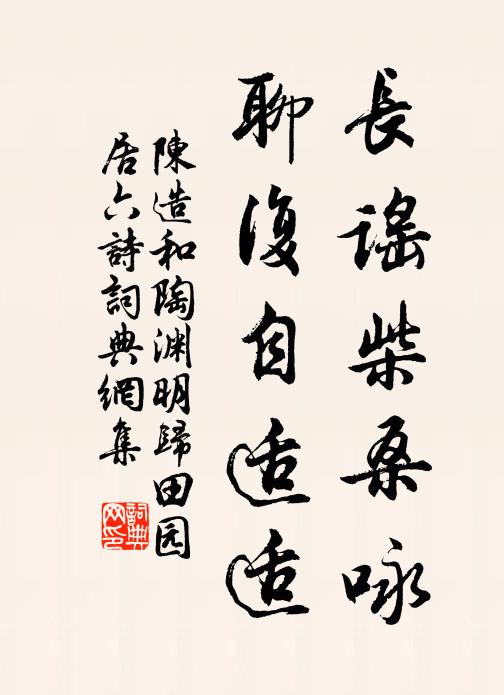 長谣柴桑咏
聊復自适适
陳造和陶渊明歸田园
居六詩詞典網集
詞典
网印